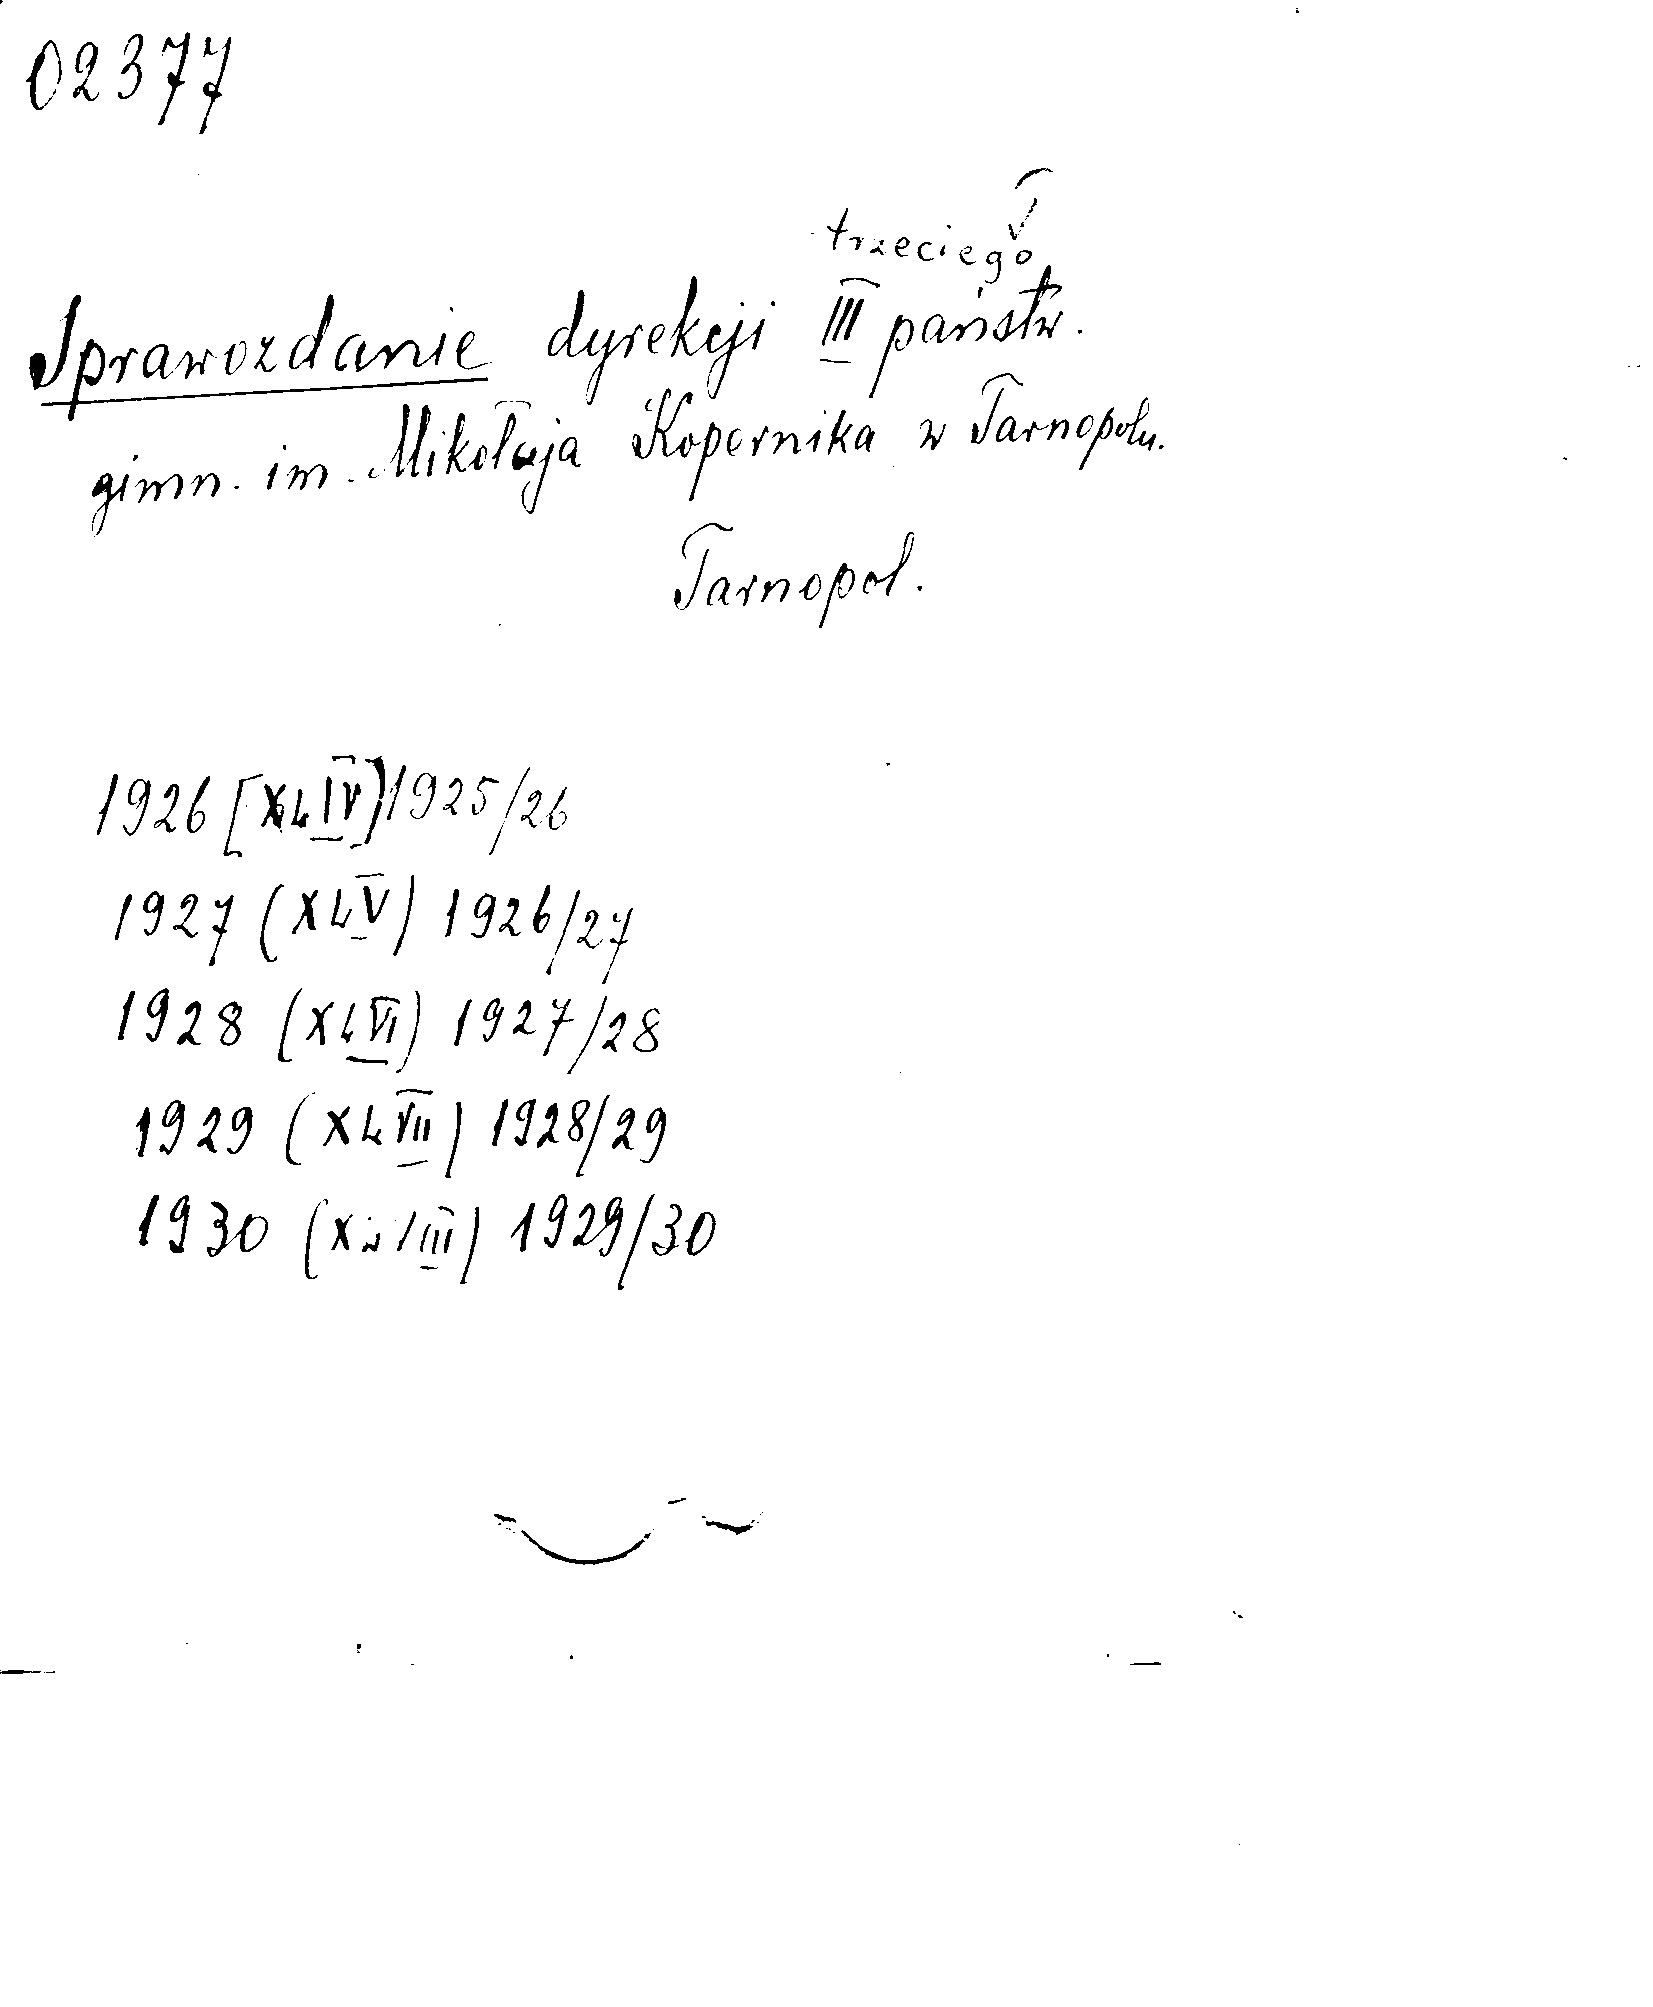 02377
trzeciego
Sprawozdanie dyrekcji III państw.
gimn. im. Mikołaja Kopernika w Tarnopolu.
Tarnopol.
1926 [XLIV] 1925/26
1927 (XLV) 1926/27
1928 (XLVI) 1927/28
1929 (XLVII) 1928/29
1930 (XLVIII) 1929/30